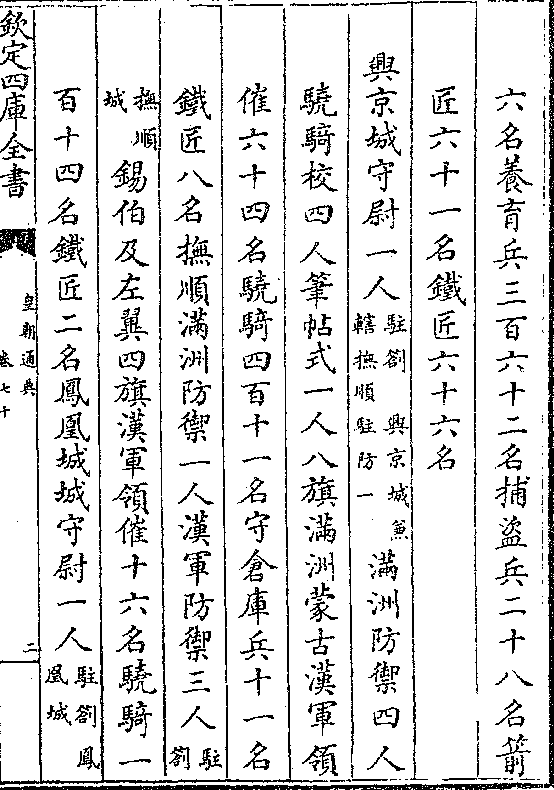 六名養育兵三百六十二名捕盜兵二十八名箭
匠六十一名鐵匠六十六名
興京城守尉一人駐劄興京城兼轄撫順駐防一滿洲防禦四人
驍騎校四人筆帖式一人八旗滿洲蒙古漢軍領
催六十四名驍騎四百十一名守倉庫兵十一名
鐵匠八名撫順滿洲防禦一人漢軍防禦三人駐劄
撫順城錫伯及左翼四旗漢軍領催十六名驍騎一
百十四名鐵匠二名鳳凰城城守尉一人駐劄鳳凰城
欽定四庫全書
皇朝通典
卷七十
二